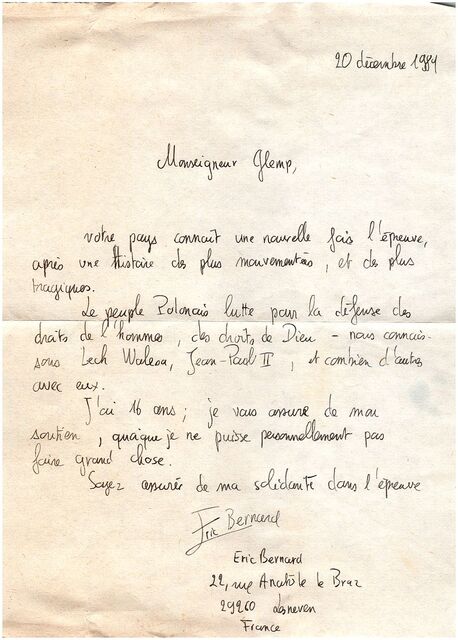 20 décembre 1984
Monseigneur Glemp,
Votre pays connait une nouvelle fois l'épreuve,
après une Histoire des plus mouvementées, et des plus
tragiques.
Le peuple Polonais lutte pour la défense des
droits de l'hommes, des droits de Dieu - nous connais-
sons Lech Walesa, Jean-Paul II, et combien d'autres
avec eux.
J'ai 16 ans ; je vous assure de mon
soutien, quoique je ne puisse personnellement pas
faire grand chose.
Soyez assurés de ma solidarité dans l'épreuve
Eric Bernard
Eric Bernard
22, rue Anatole le Braz
29260 Lesneven
France